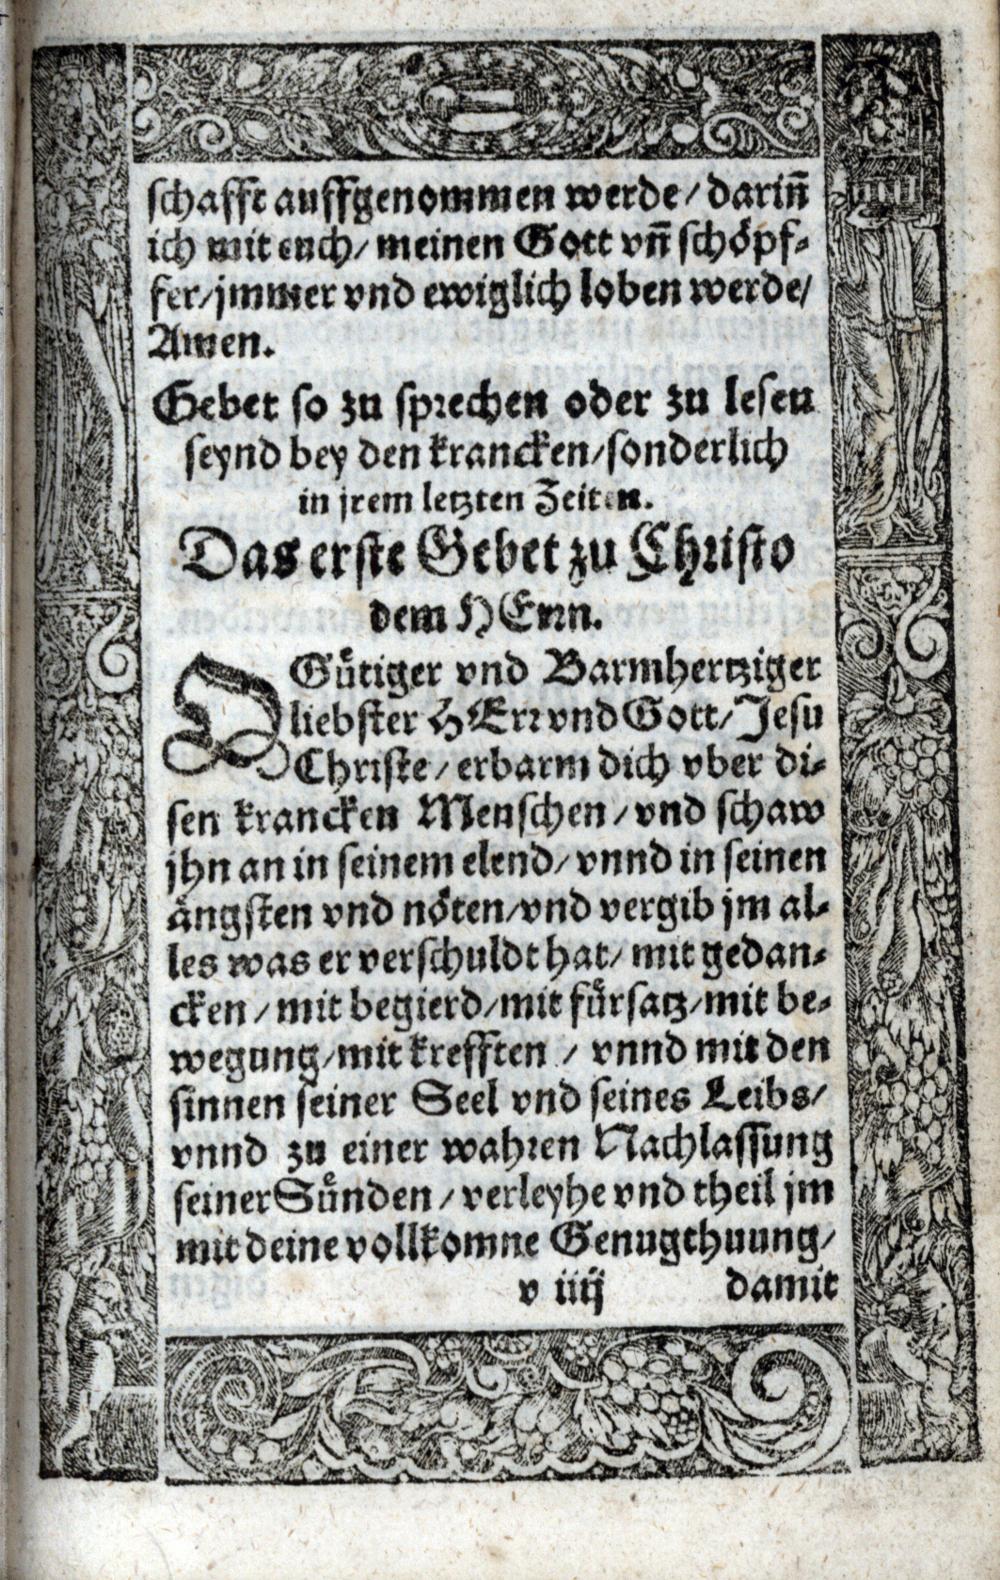 schafft auffgenommen werde / darin̄
ich mit euch / meinen Gott vn̄ schöpf⸗
fer / jmmer vnd ewiglich loben werde /
Amen.
Gebet so zu sprechen oder zu lesen
seynd bey den krancken / sonderlich
in jrem letzten Zeiten.
Das erste Gebet zu Christo
dem HErrn.
O Gütiger vnd Barmhertziger
liebster HErr vnd Gott / Jesu
Christe / erbarm dich vber di⸗
sen krancken Menschen / vnd schaw
jhn an in seinem elend / vnnd in seinen
ängsten vnd nöten / vnd vergib jm al⸗
les was er verschuldt hat / mit gedan⸗
cken / mit begierd / mit fürsatz / mit be⸗
wegung / mit krefften / vnnd mit den
sinnen seiner Seel vnd seines Leibs /
vnnd zu einer wahren Nachlassung
seiner Sünden / verleyhe vnd theil jm
mit deine vollkomne Genugthuung /
v iiij damit